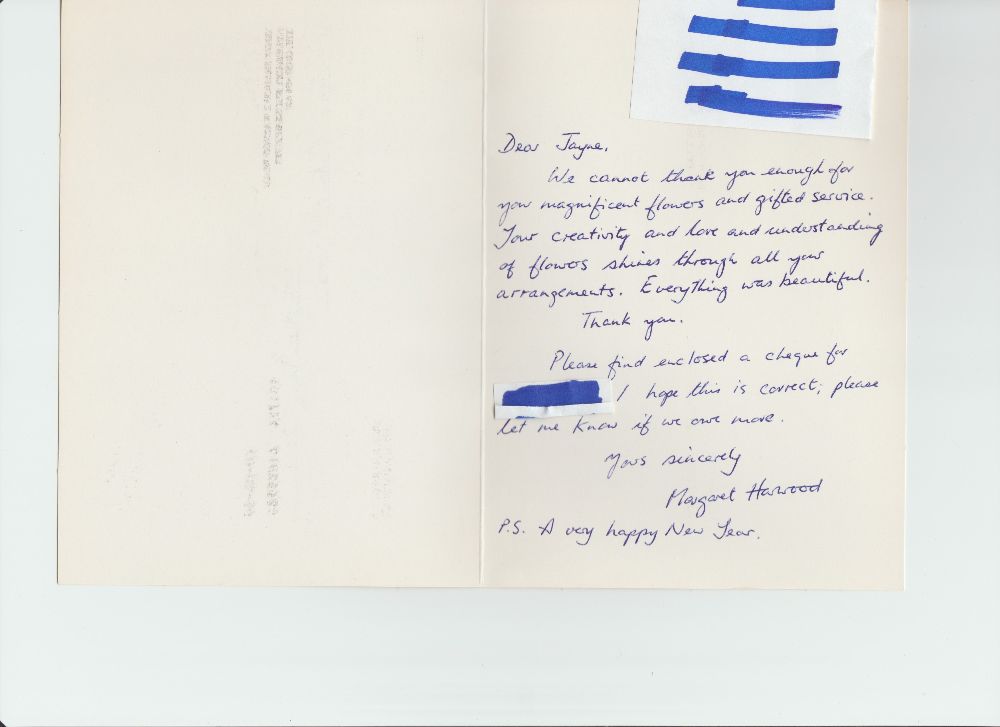 Dear Jayne,
We cannot thank you enough for
your magnificent flowers and gifted service.
Your creativity and love and understanding
of flowers shines through all your
arrangements. Everything was beautiful.
Thank you.
Please find enclosed a cheque for
I hope this is correct; please
let me know if we owe more.
Yours sincerely
Margaret Harwood
P.S. A very happy New Year.